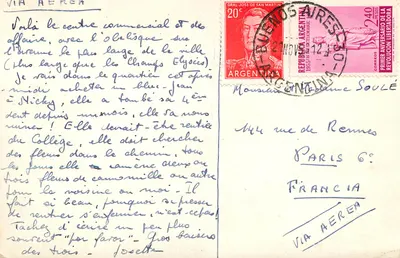 VIA AEREA
Voilà le centre commercial et des
affaires, avec l'obélisque sur
l'avenue la plus large de la ville
(plus large que les Champs Elysées)
Je vais dans ce quartier cet après-
midi acheter un blue-jean
à Nicky, elle a tombé sa 4ème
dent depuis un mois, elle va nous
ruiner! Elle devrait être rentrée
du Collège, elle doit chercher
des fleurs dans le chemin, tous
les jours elle ramène deux ou
trois fleurs de camomille ou autre
pour la voisine ou moi. Il
fait si beau, pourquoi se presser
de rentrer s'enfermer, n'est-ce pas!
Tachez d'écrire un peu plus
souvent "por favor" - Gros baisers
des trois. Josette
GRAL. JOSE DE SAN MARTIN
20c
ARGENTINA
BUENOS AIRES
NOV
12
ARGENTINA
2.40
REPUBLICA ARGENTINA
REVOLUCION LIBERTADORA
Monsieur SOULÉ
144 rue de Rennes
PARIS 6e
FRANCIA
VIA AEREA